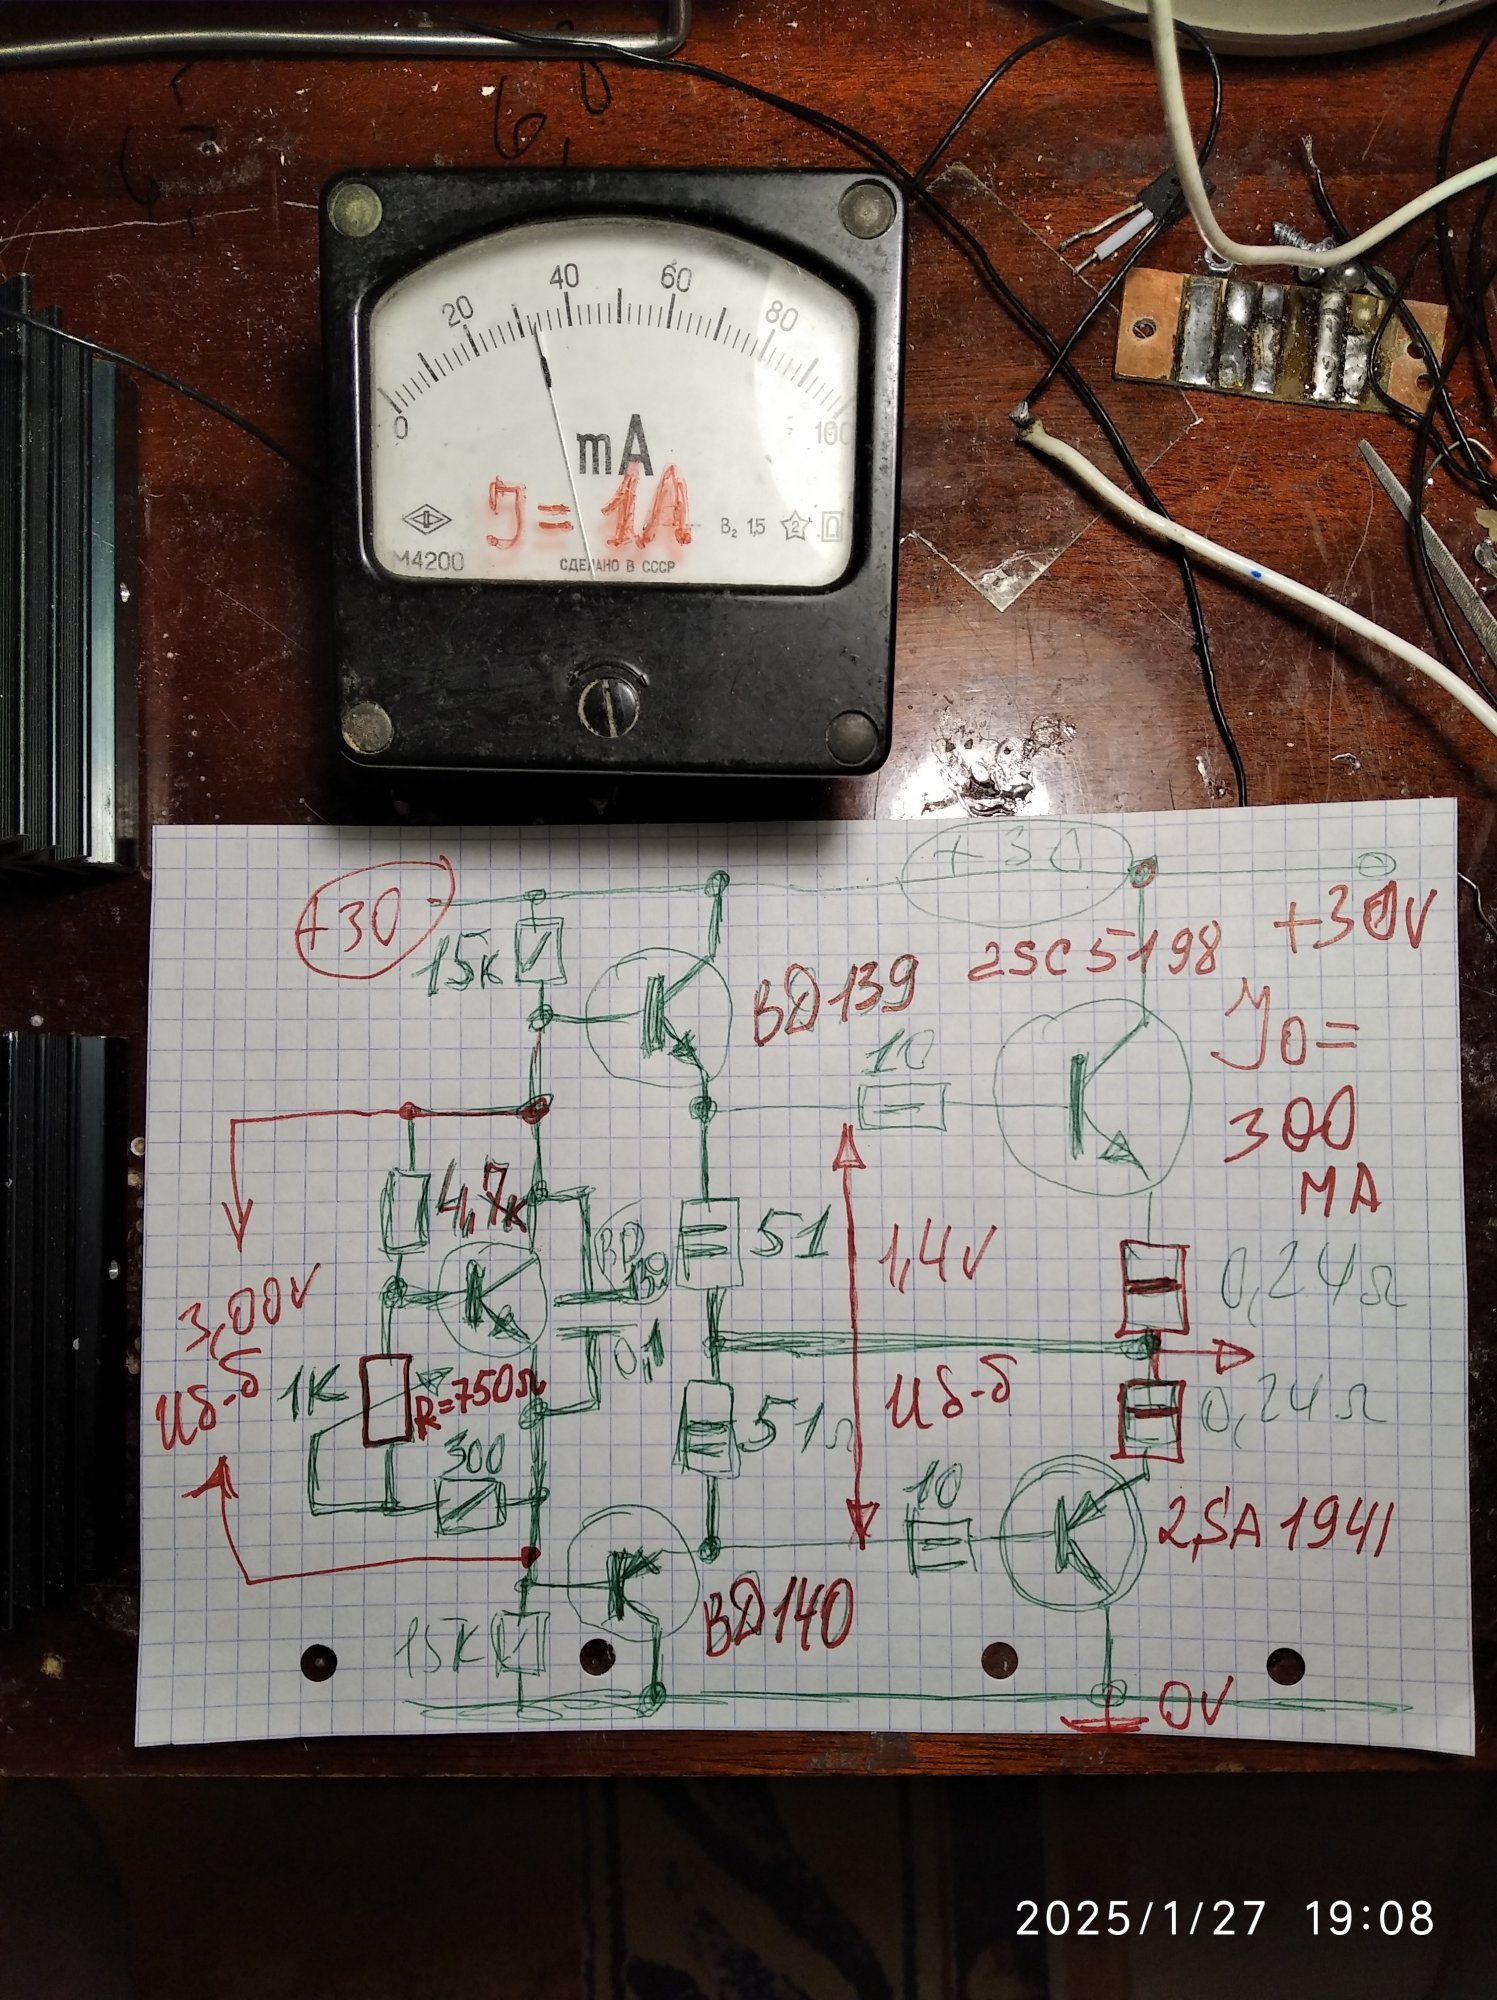 6,8
0 20 40 60 80 100
mA
J = 1A
B₂ 1,5 2
M4200
СДЕЛАНО В СССР
+30
+30
+30V
15к
BD139
2SC5198
10
J0=
300
MA
4,7к
BD
139
51
1,4V
0,24Ω
3,00V
Uб-б
1K
R=750Ω
0,1
300
51Ω
Uб-б
0,24Ω
10
2SA1941
BD140
15K
0V
2025/1/27 19:08